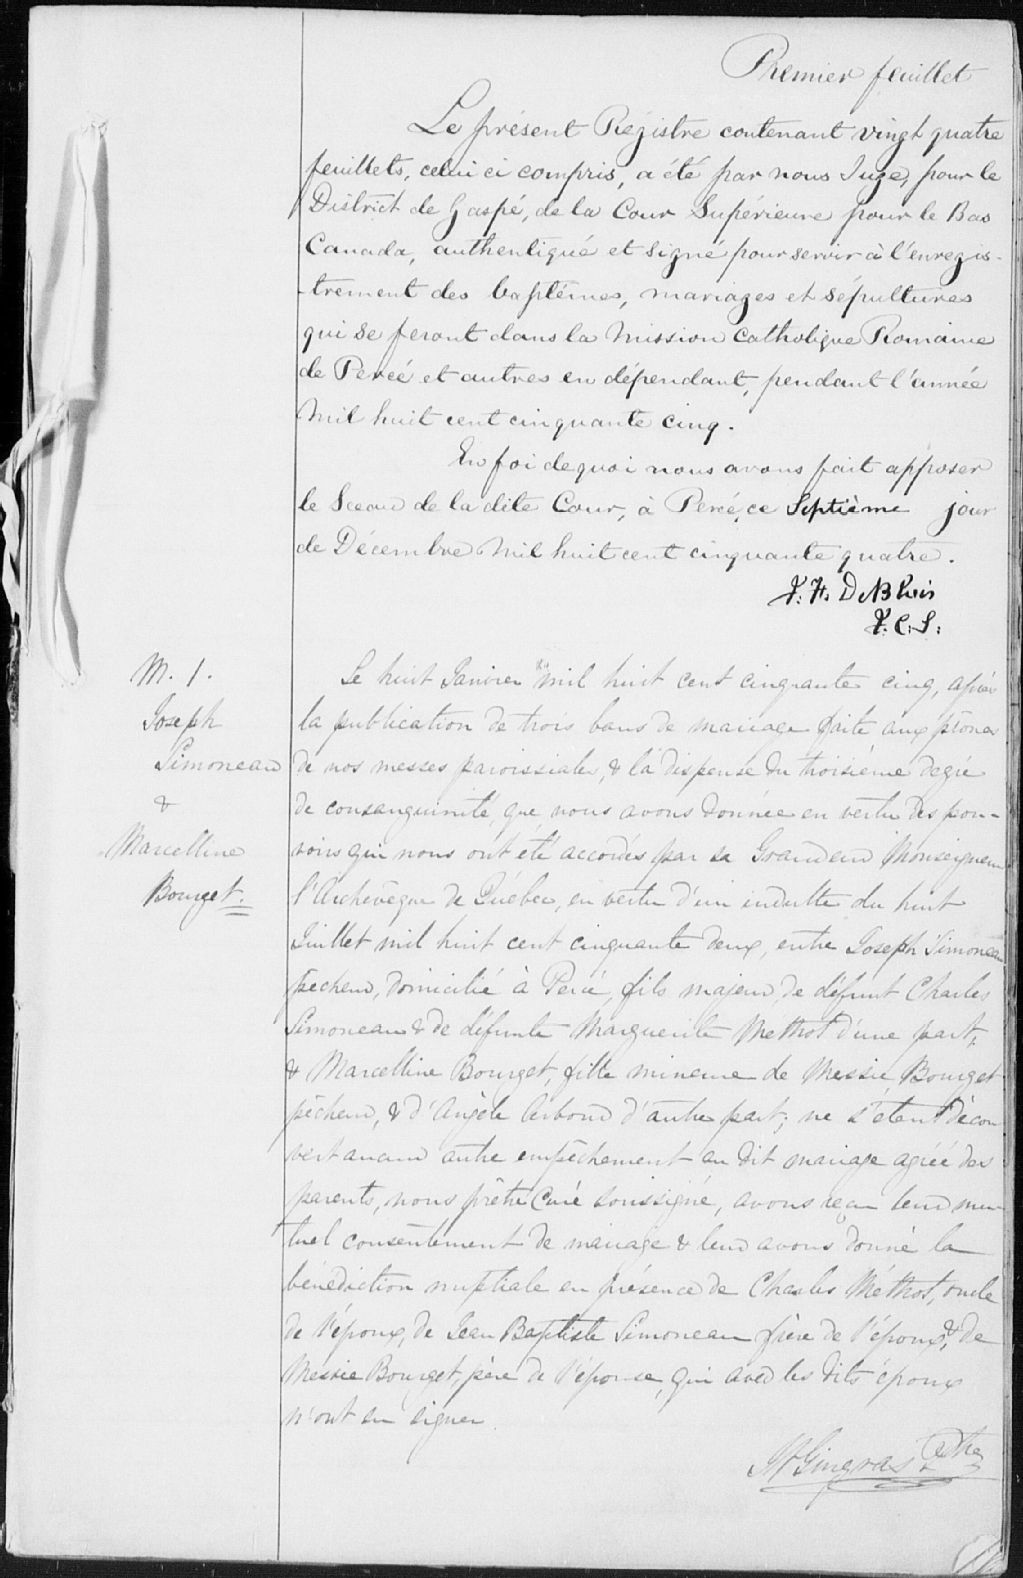 Premier feuillet
Le présent Régistre contenant vingt quatre
feuillets, celui ci compris, a été par nous Juge, pour le
District de Gaspé, de la Cour Supérieure pour le Bas
Canada, authentiqué et signé pour servir à l'enregis-
-trement des baptêmes, mariages et sépultures
qui se feront dans la Mission Catholique Romaine
de Percé et autres en dépendant, pendant l'année
Mil huit cent cinquante cinq.
En foi de quoi nous avons fait apposer
le Sceau de la dite Cour, à Percé, ce Septième jour
de Décembre Mil huit cent cinquante quatre.
J. C. S.
M. 1.
Joseph
Simoneau
&
Marcelline
Bourget.
Le huit Janvier mil huit cent cinquante cinq, après
la publication de trois bans de mariage faite aux prônes
de nos messes paroissiales, & la dispense du troisième degré
de consanguinité, que nous avons donnée en vertu des pou-
voirs qui nous ont été accordés par sa Grandeur Monseigneur
l'Archevêque de Québec, en vertu d'un indulte du huit
Juillet mil huit cent cinquante deux, entre Joseph Simoneau
pêcheur, domicilié à Percé, fils majeur de défunt Charles
Simoneau & de défunte Marguerite Méthot d'une part,
& Marcelline Bourget, fille mineure de Messie Bourget
pêcheur, & d'Angèle d'autre part; ne s'étant décou
vert aucun autre empêchement au dit mariage agréé des
parents, nous prêtre Curé soussigné, avons reçu leur mu-
tuel consentement de mariage & leur avons donné la
bénédiction nuptiale en présence de Charles Méthot, oncle
de l'époux, de Jean Baptiste Simoneau frère de l'époux, & de
Messie Bourget, père de l'épouse, qui avec les dits époux
n'ont su signer.
Gingras Ptre